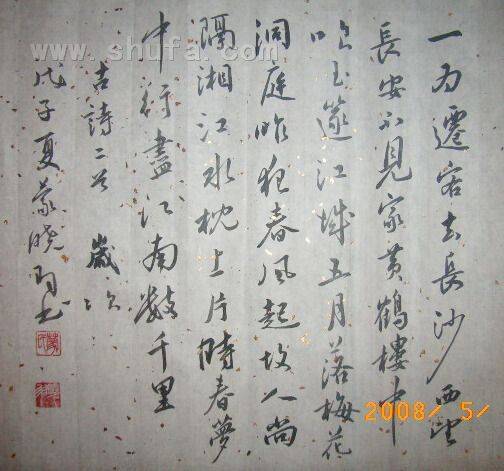 一为遷客去長沙西望
長安不見家黄鶴樓中
吹玉篴江城五月落梅花
洞庭昨夜春风起故人尚
隔湘江水枕上片時春夢
中行盡江南数千里
古詩二首 歲次
戊子夏蒙曉书
www.shufa.com
2008/ 5/